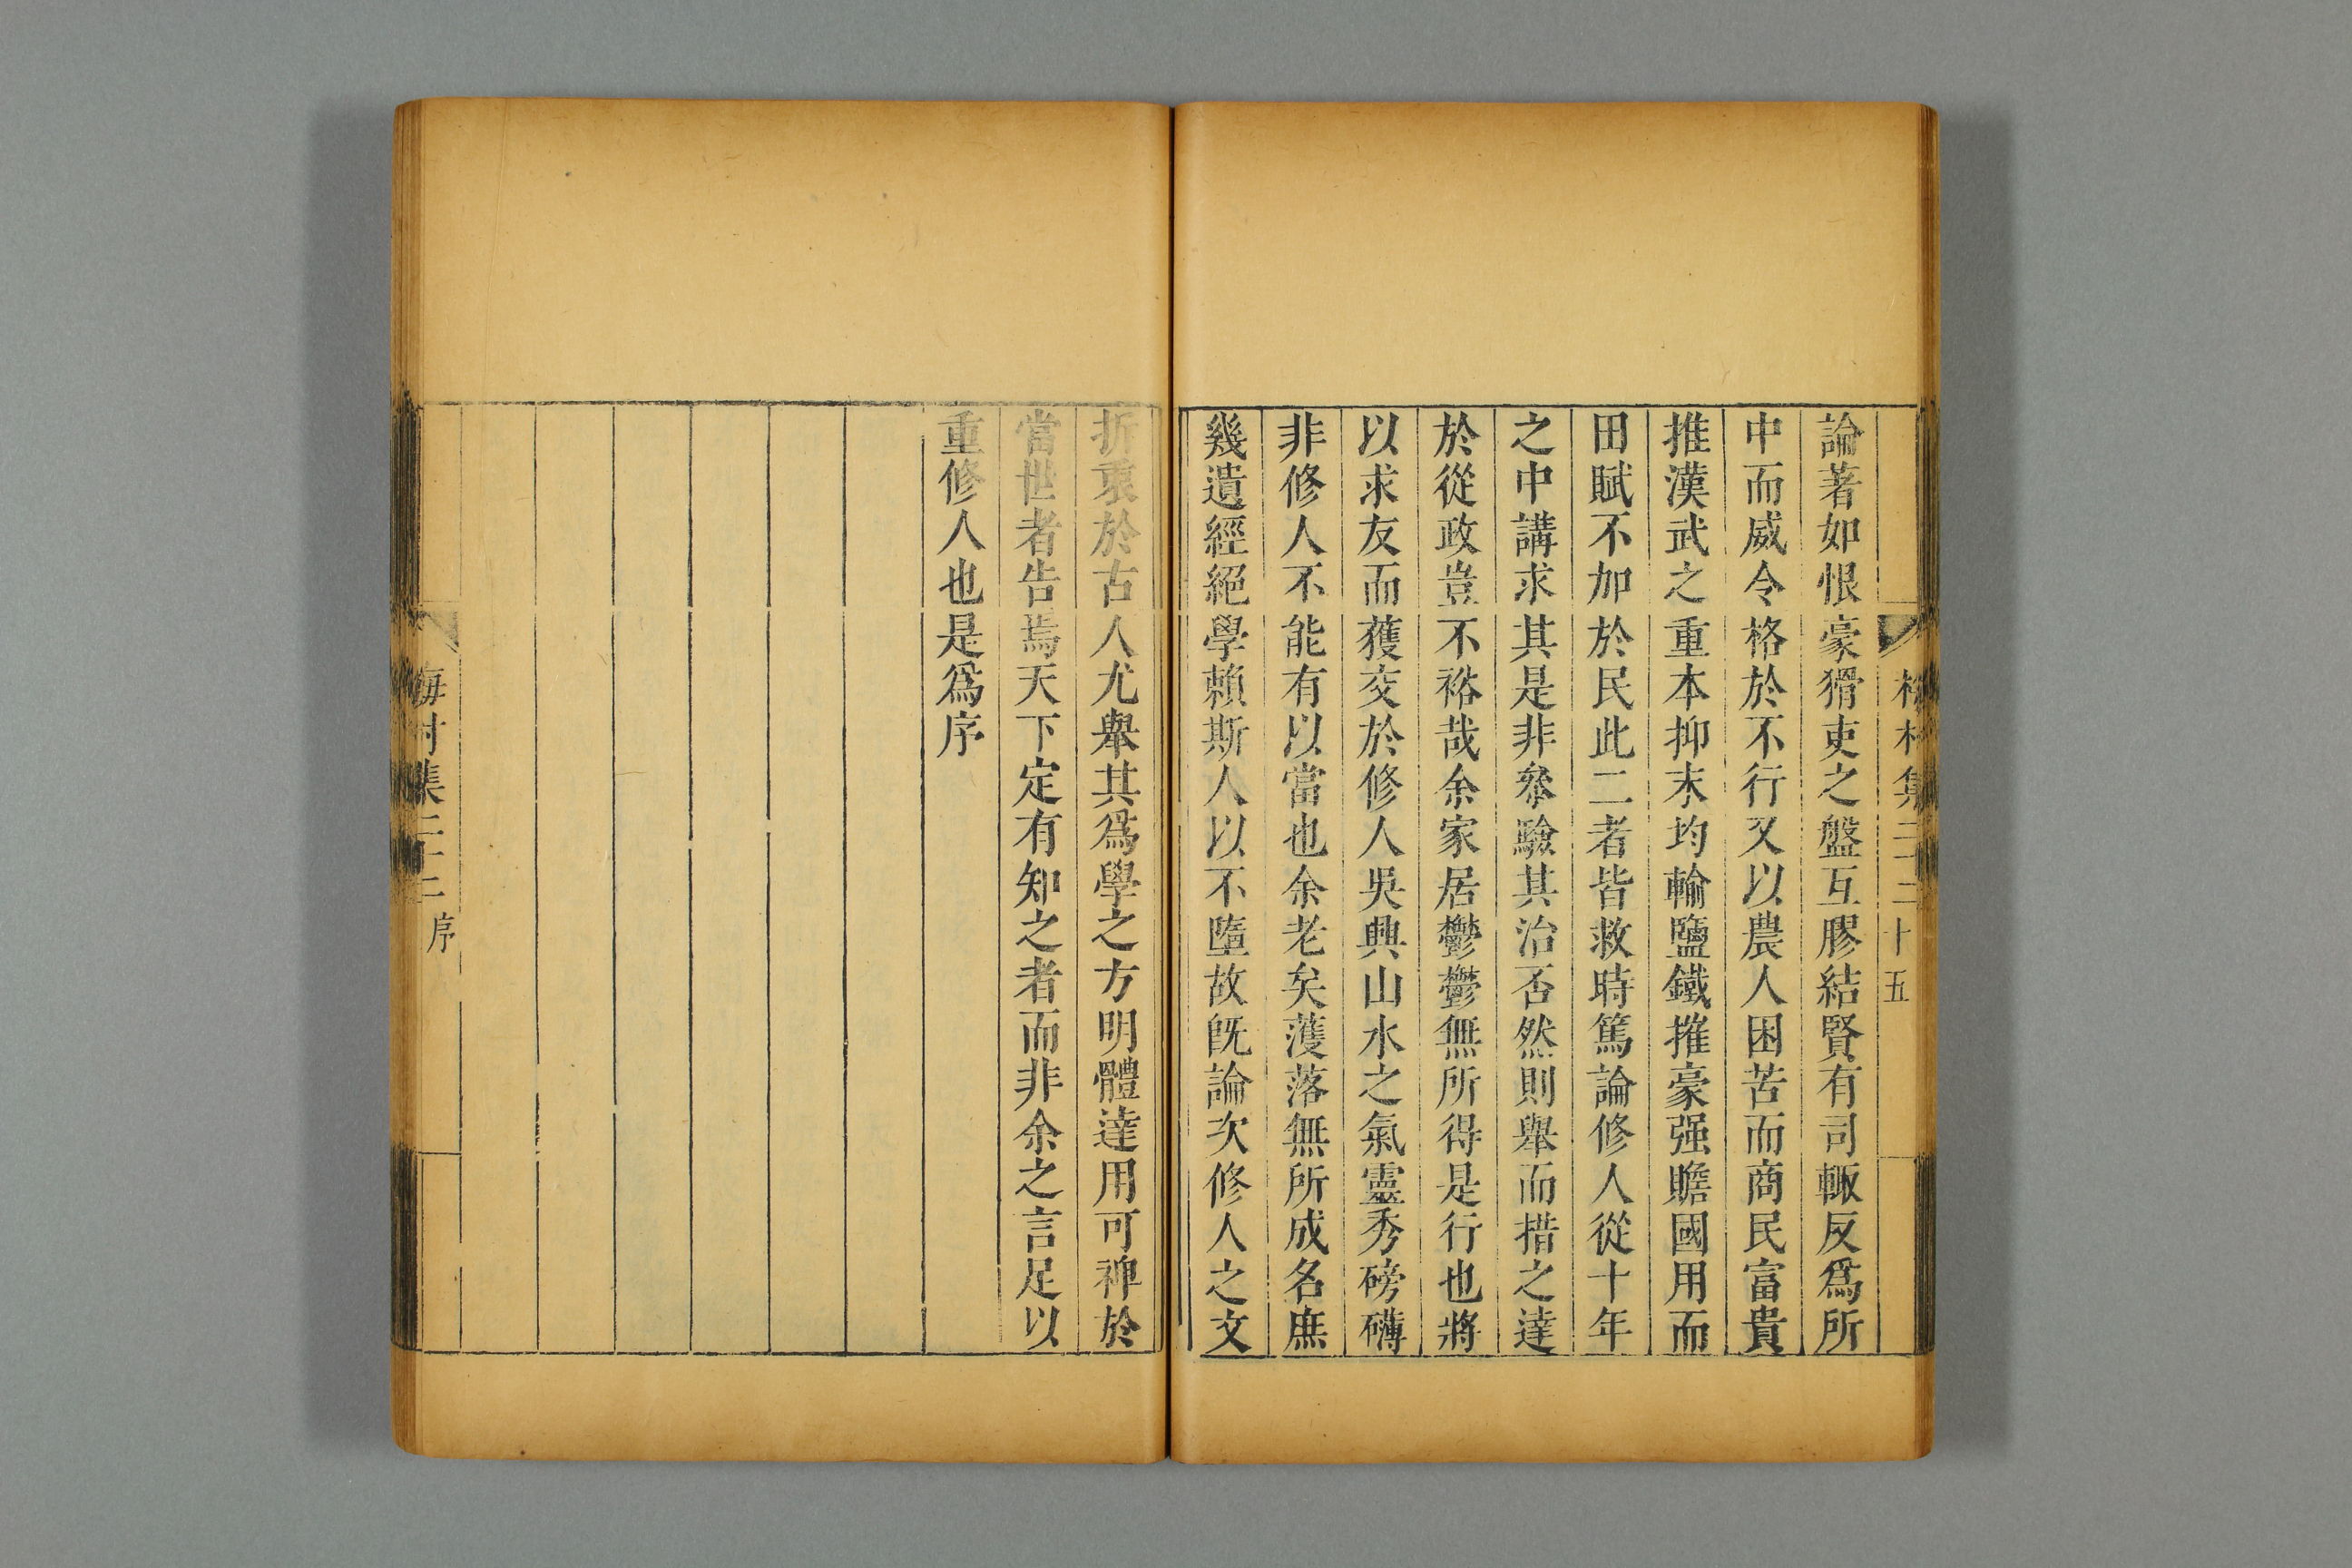 論著如恨豪猾吏之盤互膠結賢有司輙反爲所
中而威令格於不行又以農人困苦而商民富貴
推漢武之重本抑末均輸鹽鐵摧豪强贍國用而
田賦不加於民此二者皆救時篤論修人從十年
之中講求其是非叅驗其治否然則舉而措之達
於從政豈不裕哉余家居鬱鬱無所得是行也將
以求友而獲交於修人吳興山水之氣靈秀磅礴
非修人不能有以當也余老矣濩落無所成名庶
幾遺經絕學賴斯人以不墮故旣論次修人之文
折衷於古人尤舉其爲學之方明體達用可裨於
當世者告焉天下定有知之者而非余之言足以
重修人也是爲序
梅村集二十二 序
十五